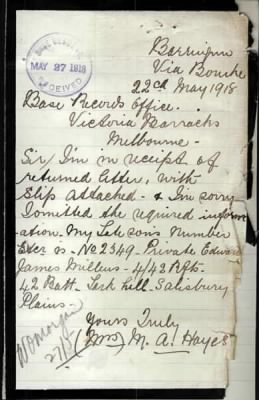 BASE RECORDS
MAY 27 1918
RECEIVED
Barringun
Via Bourke
22nd May 1918
Base Records Office.
Victoria Barracks
Melbourne -
Sir I'm in receipt of
returned letter, with
Slip attached - & I'm sorry
I omitted the required inform
ation. My late son's Number
Etcr is - No 2349 - Private Edward
James Millens - 4/42 Rfts -
42 Batt. Lark hill - Salisbury
Plains -
Yours Truly
(Mrs) M. A. Hayes
27/5